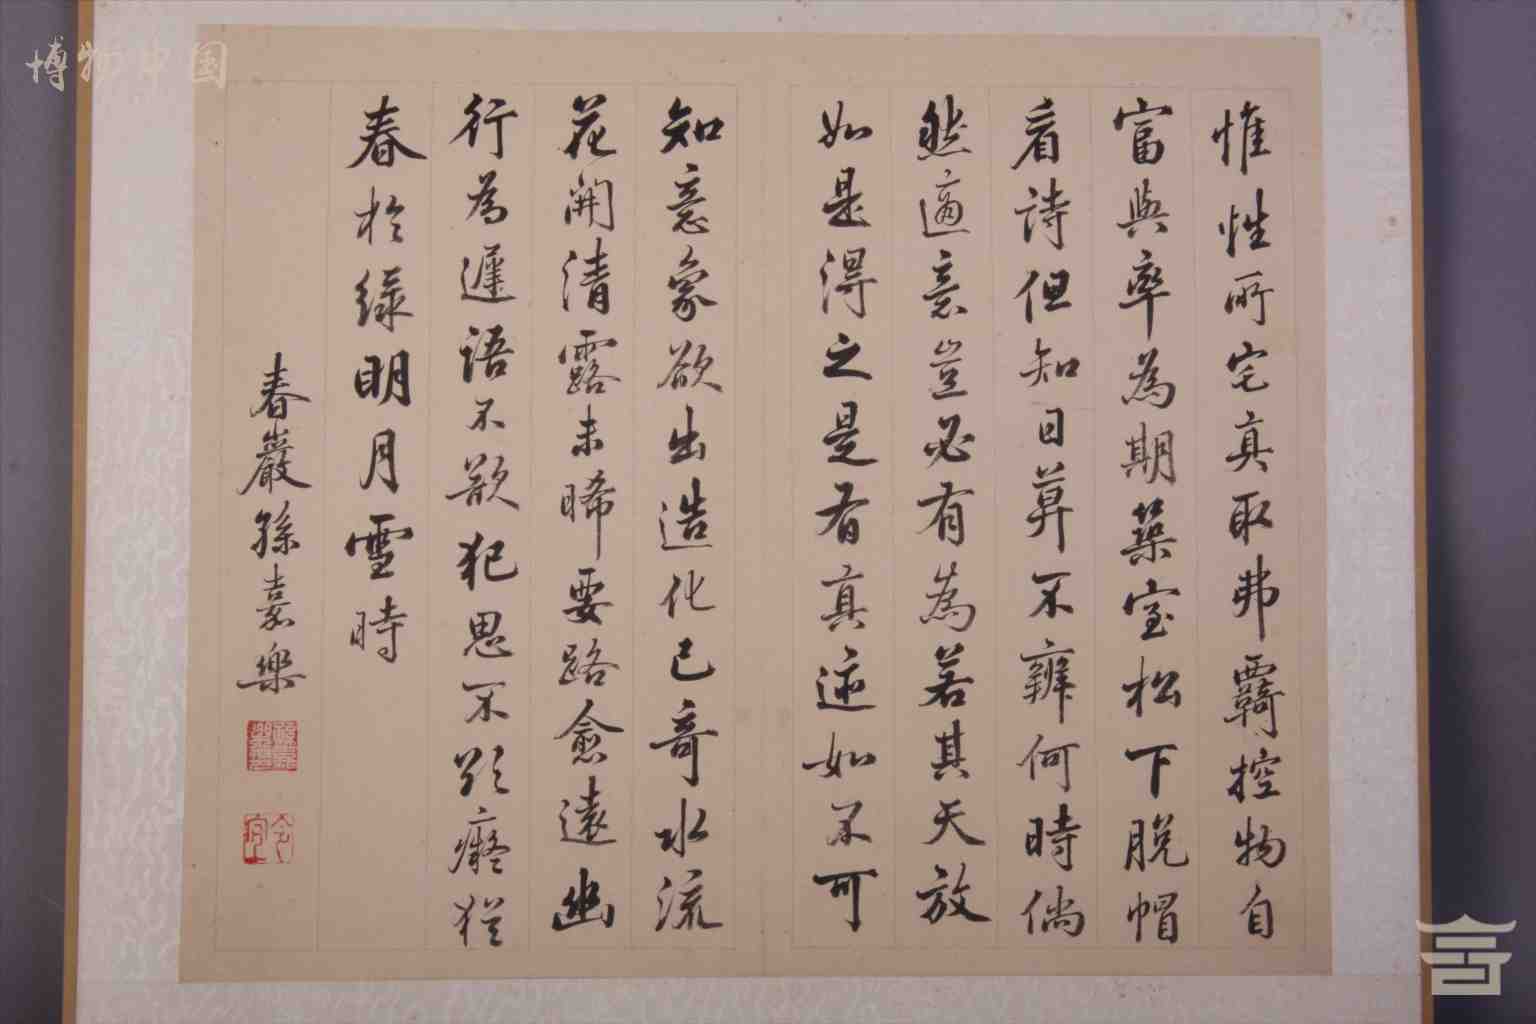 惟性所宅真取弗羈控物自
富與率為期築室松下脫帽
看詩但知旦莫不辨何時倘
然適意豈必有為若其天放
如是得之是有真迹如不可
知意象欲出造化已奇水流
花開清露未晞要路愈遠幽
行為遲語不欲犯思不欲癡猶
春於綠明月雪時
春巖孫嘉樂
博物中国